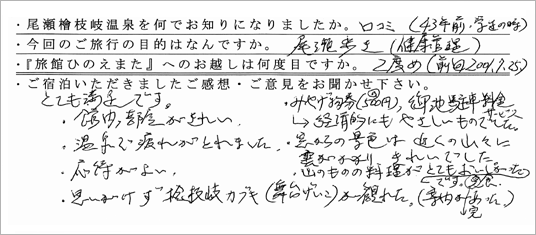 ・尾瀬檜枝岐温泉を何でお知りになりましたか。口コミ（43年前・学生の時）
・今回のご旅行の目的はなんですか。尾瀬歩き（健康管理）
・『旅館ひのえまた』へのお越しは何度目ですか。2度め（前回2009.7.25）
・ご宿泊いただきましたご感想・ご意見をお聞かせ下さい。
とても満足です。
・館内、部屋がきれい.
・温泉で疲れがとれました.
・応待がよい.
・思いがけず 桧枝岐カブキ（舞台げいこ）が観れた。（案内があった。）
・みやげ物券（500円）、御池駐車料金サービス
→経済的にもやさしいものでした。
・窓からの景色は近くの山々に
雲がかかり きれいでした
・山のものの料理がとてもおいしかった
です。